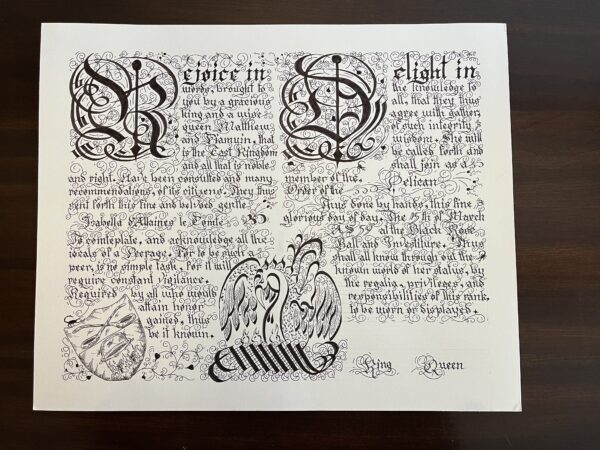 Rejoice in
words, brought to
you by a gracious
king and a wise
queen Matthew
and Tiamuin, that
is the East Kingdom
and all that is noble
and right. Have been consulted and many
recommendations, of its citizens. They thus
sent forth this fine and beloved gentle
Isabella d'Allaines le Comte
To contemplate, and acknowledge all the
ideals of a Peerage. For to be such a
peer, is no simple task, for it will
require constant vigilance.
Required, by all who would
attain honor
gained, thus
be it known.
Delight in
the knowledge to
all, that they thus
agree with gather,
of such integrity
wisdom. She will
be called forth and
shall join as a
member of the. Pelican
Order of the
Thus done by hands, this fine
glorious day of day. The 15th of March
A.S. at the Black Rose
Ball and Investiture. Thus
shall all know through out the
known world of her status, by
the regalia, privileges, and
responsibilities of this rank.
to be worn or displayed.
King Queen